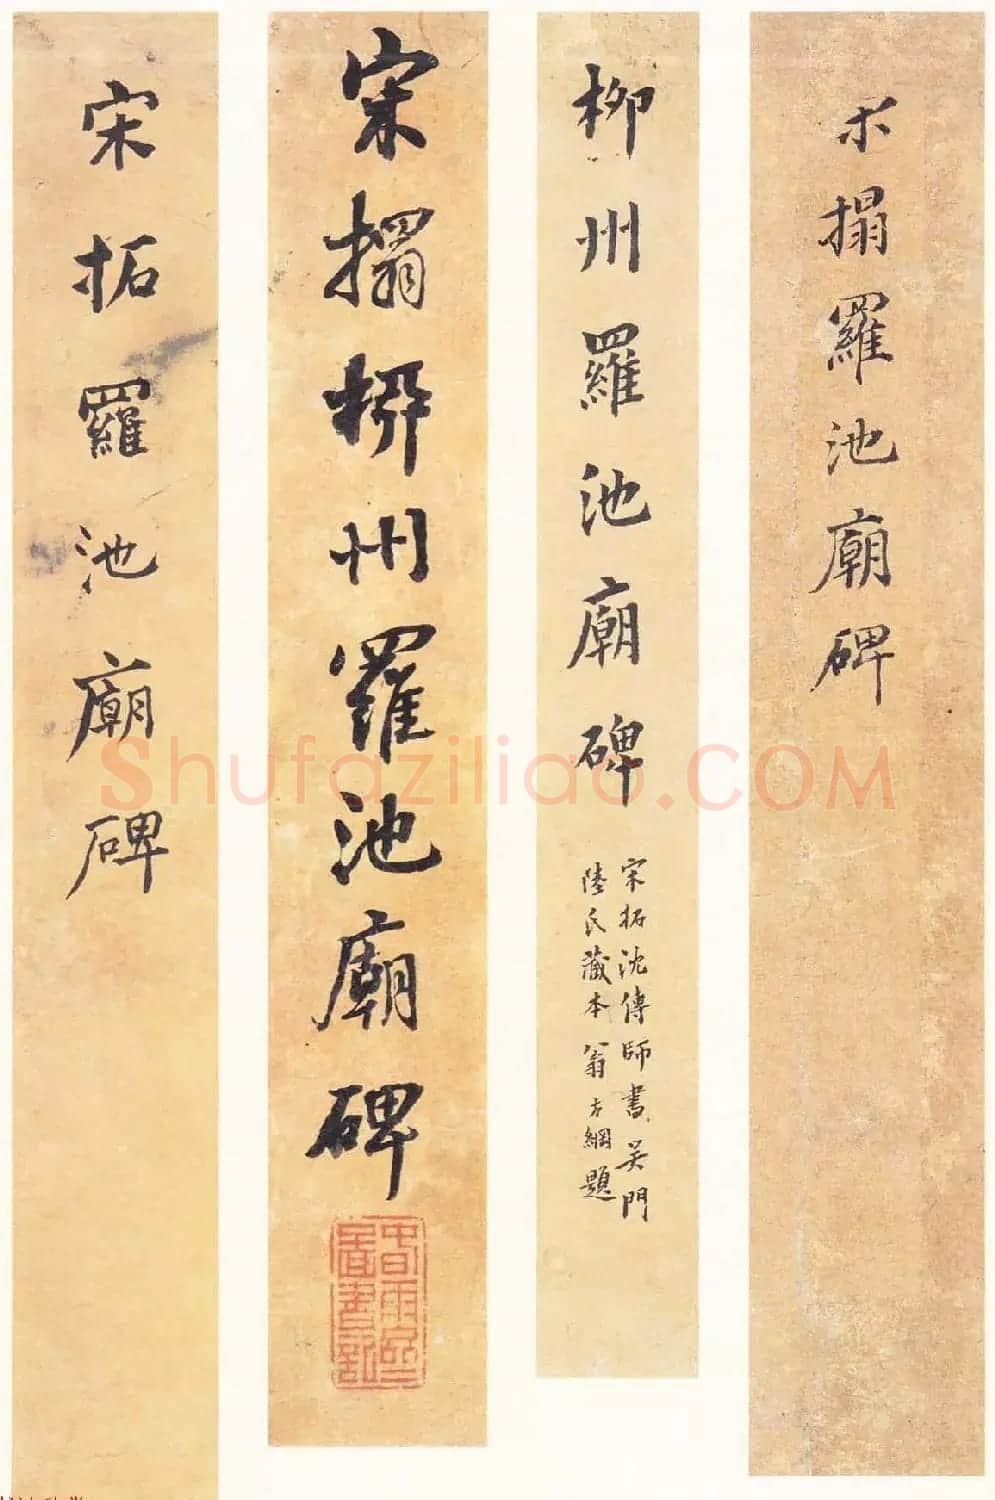 宋搨羅池廟碑
柳州羅池廟碑
宋拓沈傳師書吳門
陸氏藏本翁方綱題
宋搨柳州羅池廟碑
宋拓羅池廟碑
Shufaziliao.COM